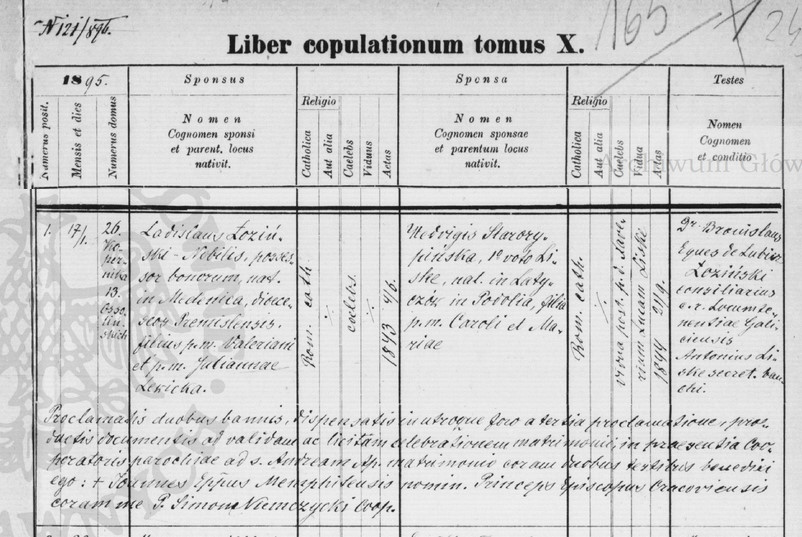 N 121/896.
165
24
Liber copulationum tomus X.
1895.
Sponsus
Sponsa
Testes
Numerus posit.
Mensis et dies
Numerus domus
Nomen
Cognomen sponsi
et parent. locus
nativit.
Religio
Catholica
Aut alia
Caelebs
Viduus
Aetas
Nomen
Cognomen sponsae
et parentum locus
nativit.
Religio
Catholica
Aut alia
Caelebs
Vidua
Aetas
Nomen
Cognomen
et conditio
Archiwum Główn
1.
17/1.
26.
Koper-
nika
13.
Osso-
liń-
skich
Ladislaus Łoziń-
ski - Nobilis, posses-
sor bonorum, nat.
in Medenica, dioece-
seos Premislensis,
filius p.m. Valeriani
et p.m. Juliannae
Lewicka.
Rom. cath
∴
caelebs.
∴
1843 4/6.
Hedvigis Starory-
pińska, 1º voto Li-
ske, nat. in Laty-
czów in Podolia, filia
p.m. Caroli et Ma-
riae
Rom. cath.
∴
vidua post p.d. Xave-
rium Lucam Liske
1844 21/9.
Dr. Bronislaus
Eques de Lubicz
Łoziński
consiliarius
c.r. Locumte-
nentiae Gali-
ciensis
Antonius Li-
ske secret. ban-
chi.
Proclamatis duobus bannis, dispensatis in utroque foro a tertia proclamatione, pro-
ductis documentis ad validam ac licitam celebrationem matrimonii, in praesentia Coo-
peratoris parochiae ad s. Andream Ap. matrimonio coram duobus testibus benedixi
ego: + Joannes Eppus Memphitensis nomin. Princeps Episcopus Cracoviensis
coram me P. Simone Niemczycki Coop.